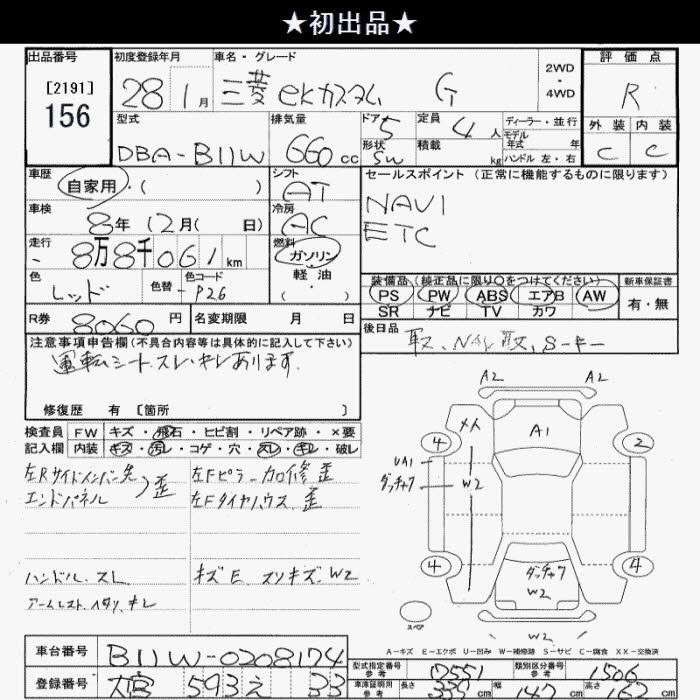 ★初出品★
出品番号
[2191]
156
初度登録年月
28年 1月
車名・グレード
三菱 eKカスタム G
2WD
・
4WD
評価点
R
外装 内装
C C
型式
DBA-B11W
排気量
660 cc
ドア 5
形状 SW
定員 4人
積載 kg
ディーラー・並行
モデル
年式 年
ハンドル 左・右
車歴
自家用・( )
シフト
AT
セールスポイント (正常に機能するものに限ります)
NAVI
ETC
車検
8年 12月( 日)
冷房
AC
走行
8万8千061km
燃料
ガソリン
軽油
・( )
色
レッド
色替
色コード
P26
装備品 (純正品に限り○をつけてください)
PS PW ABS エアB AW
SR ナビ TV カワ
新車保証書
有・無
R券 8060 円
名変期限 月 日
後日品
取、NAVI取、Sーキー
注意事項申告欄(不具合内容等は具体的に記入して下さい)
運転シート、スレ・キレあります。
修復歴 有 [箇所 ]
検査員 FW キズ・飛石・ヒビ割・リペア跡・×要
記入欄 内装 キズ・汚レ・コゲ・穴・スレ・キレ・破レ
左Rサイドメンバー先
エンドパネル
歪
左Fピラー加修 歪
左Fタイヤハウス 歪
ハンドル、スレ
アームレスト、ヘタリ、キレ
キズE スリキズ、W2
A2 A2
メ人
A1
4 2
UA1
ダッチャク
W2
4 4
ダッチャク
W2
スペア
W2
A-キズ E-エクボ U-凹み W-補修跡 S-サビ C-腐食 XX-交換済
車台番号 B11W-0208174
登録番号 大宮 593 え 33
型式指定番号
参考
17551
類別区分番号
参考
1506
車庫証明用
参考
長さ 339cm 幅 147cm 高さ cm